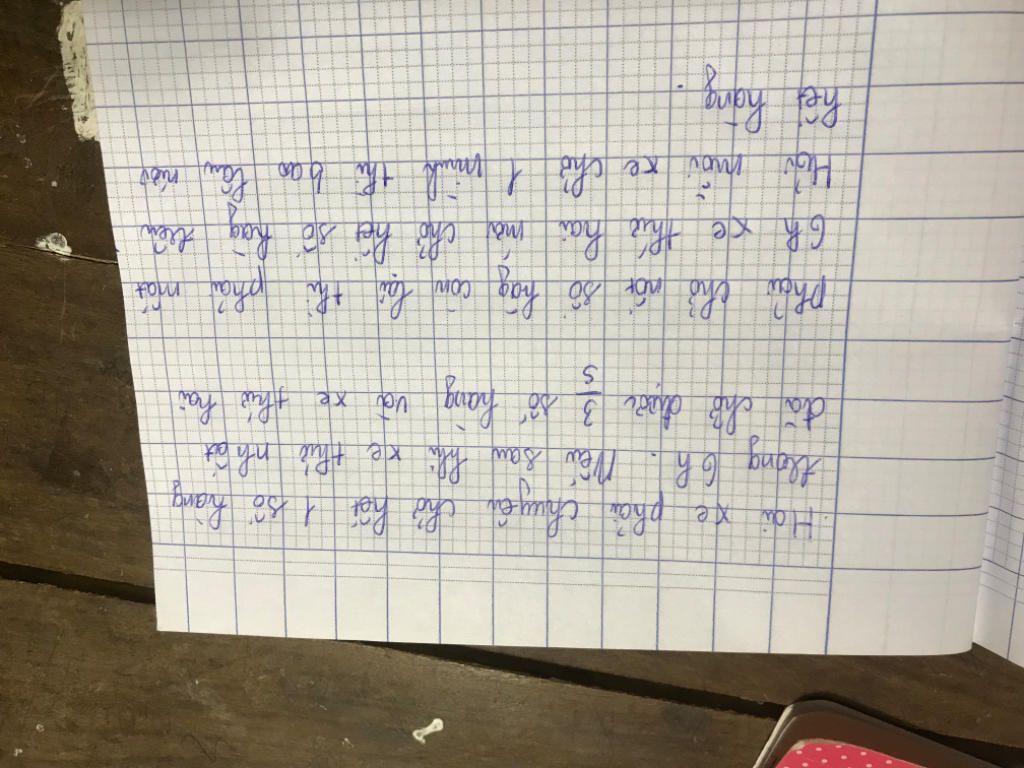 Hai xe phải chuyên chở hết 1 số hàng
trong 6h. Nếu sau khi xe thứ nhất
đã chở được 3/5 số hàng và xe thứ hai
phải chở nốt số hàg còn lại thì phải mất
6h xe thứ hai mới chở hết số hàg trên
Hỏi mỗi xe chở 1 mình thì bao lâu mới
hết hàng.